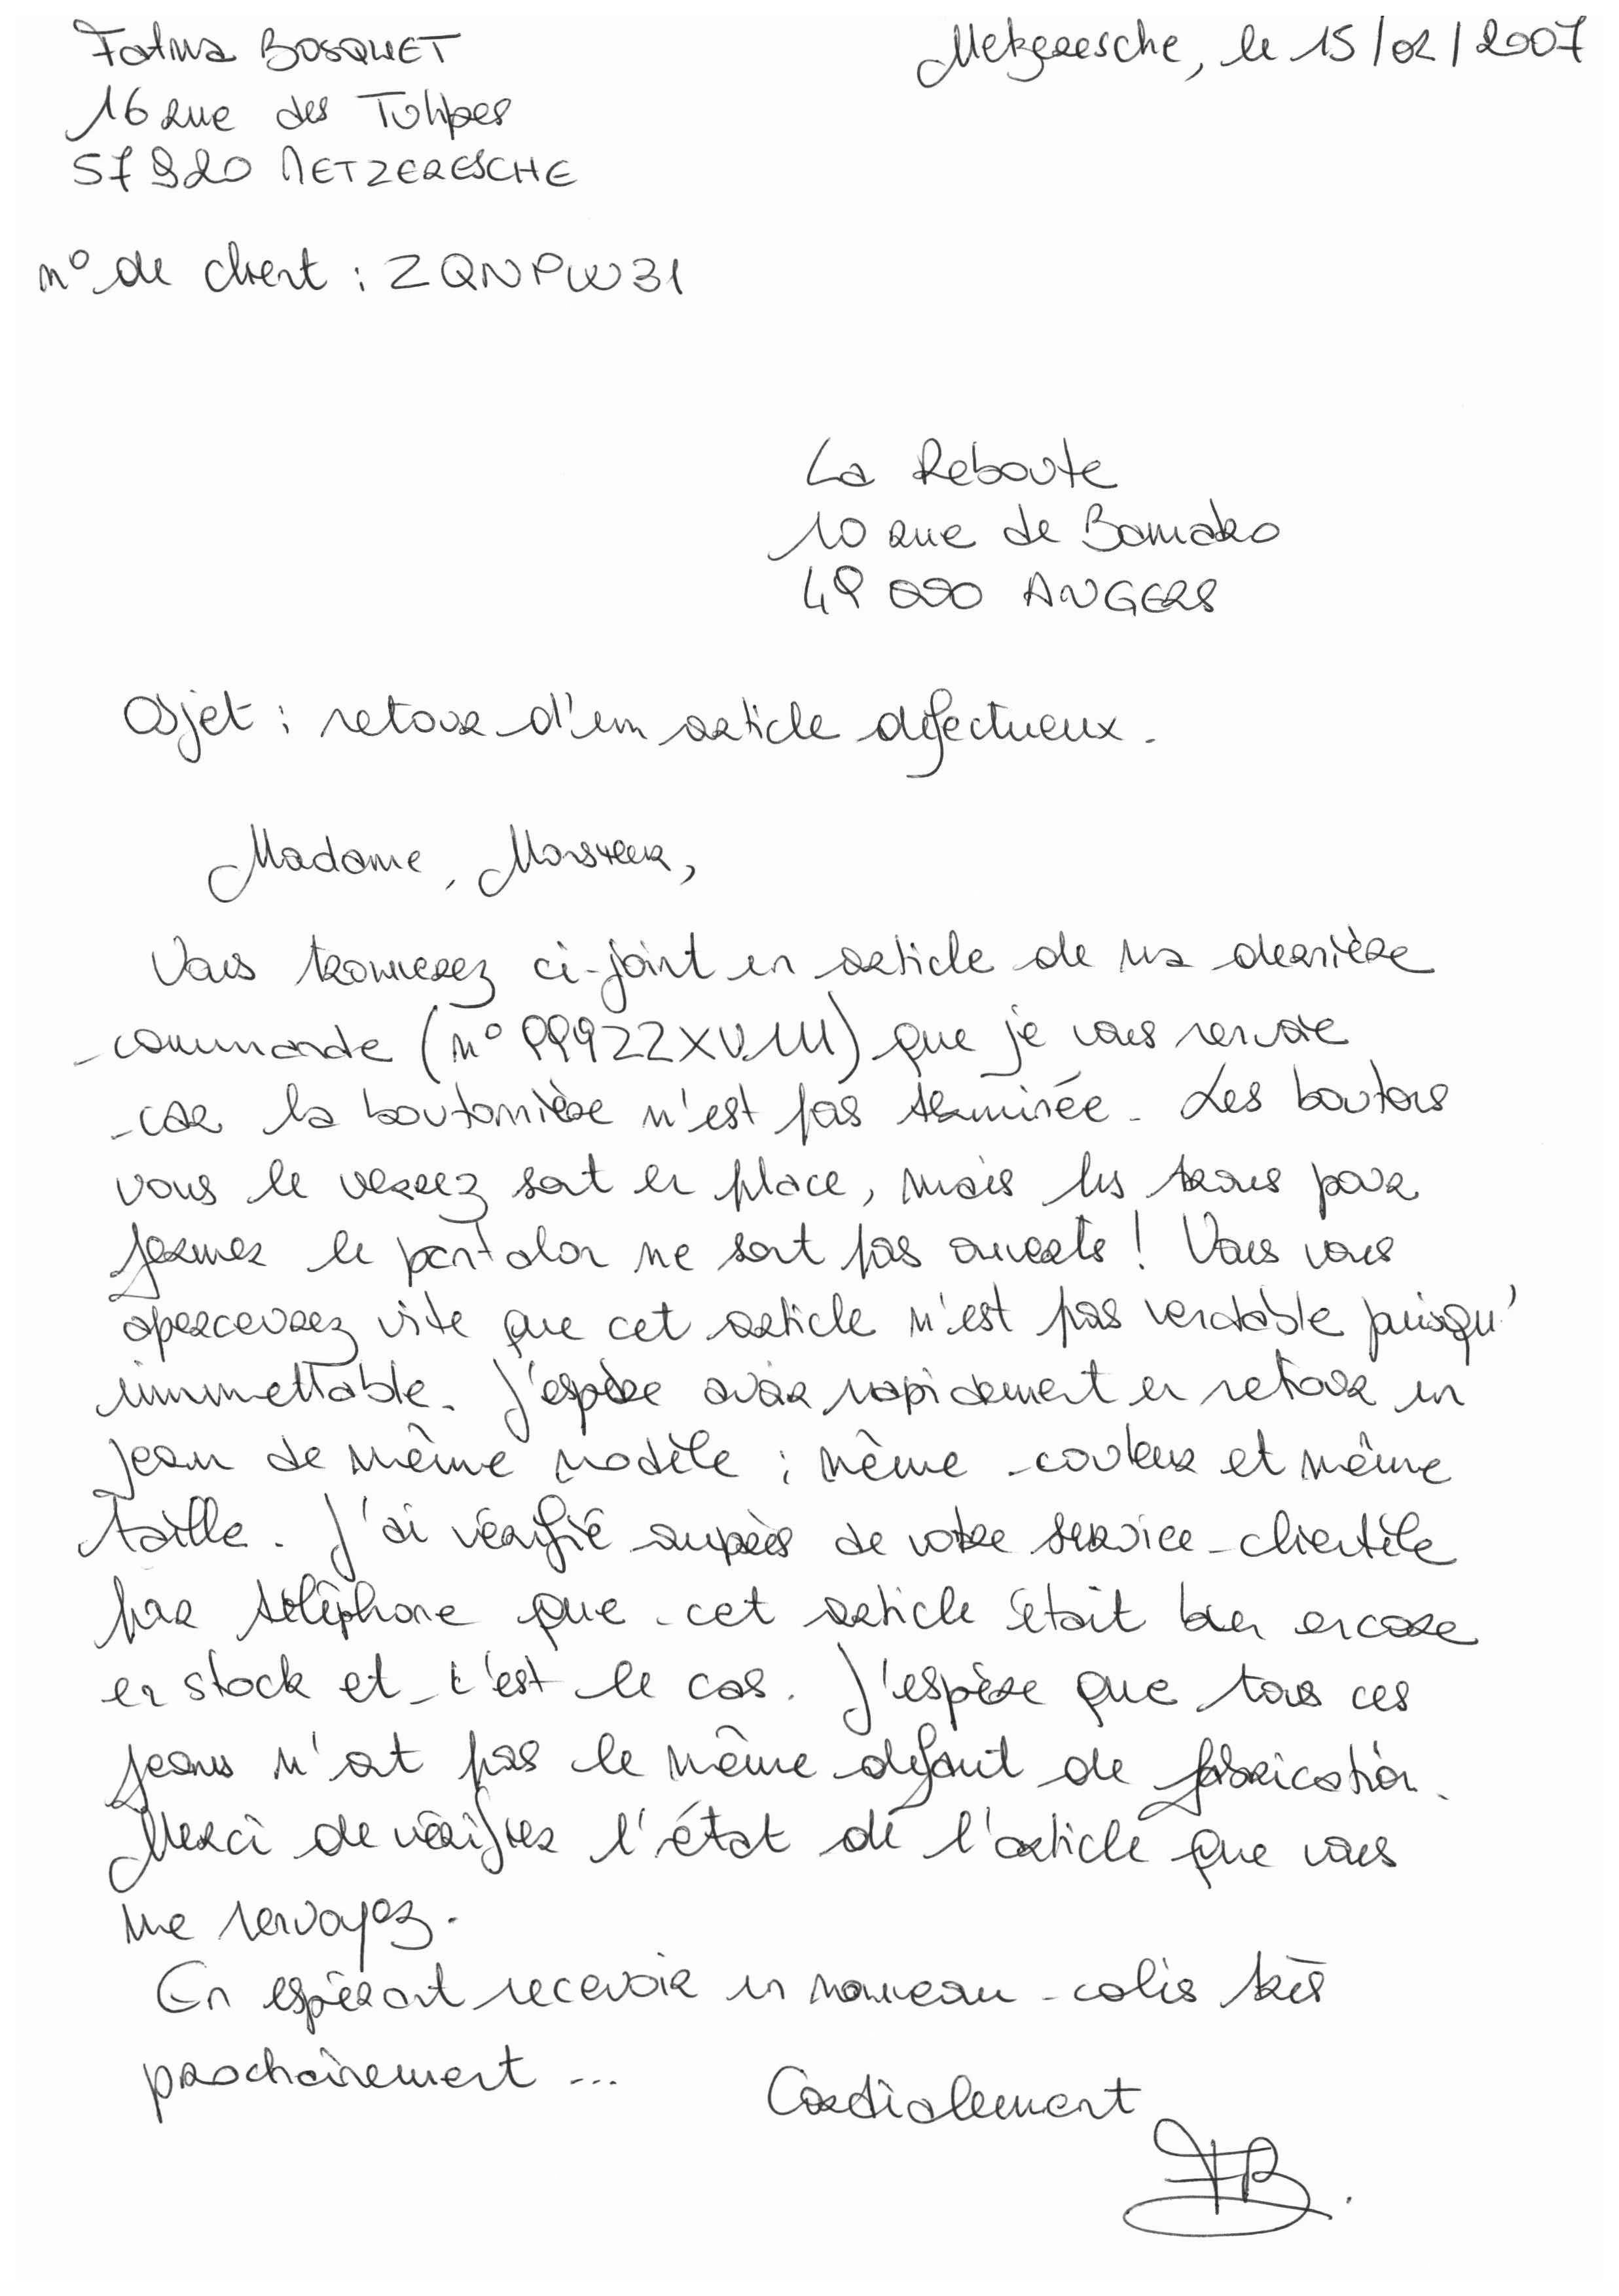 Fatma BOSQUET
Metzeresche, le 15/02/2007
16 rue des Tulipes
57920 METZERESCHE
n° de client : ZQNPW31
La Reboute
10 rue de Bamako
49 000 ANGERS
Objet : retour d'un article défectueux.
Madame, Monsieur,
Vous trouverez ci-joint un article de ma dernière
commande (n° 99922XVIII) que je vous renvoie
car la boutonnière n'est pas terminée. Les boutons
vous le verrez sont en place, mais les trous pour
fermer le pantalon ne sont pas ouverts ! Vous vous
apercevrez vite que cet article n'est pas vendable puisqu'
immettable. J'espère avoir rapidement en retour un
jean de même modèle ; même couleur et même
taille. J'ai vérifié auprès de votre service clientèle
par téléphone que cet article était bien encore
en stock et c'est le cas. J'espère que tous ces
jeans n'ont pas le même défaut de fabrication.
Merci de vérifier l'état de l'article que vous
me renvoyez.
En espérant recevoir un nouveau colis très
prochainement ...
Cordialement
FB.